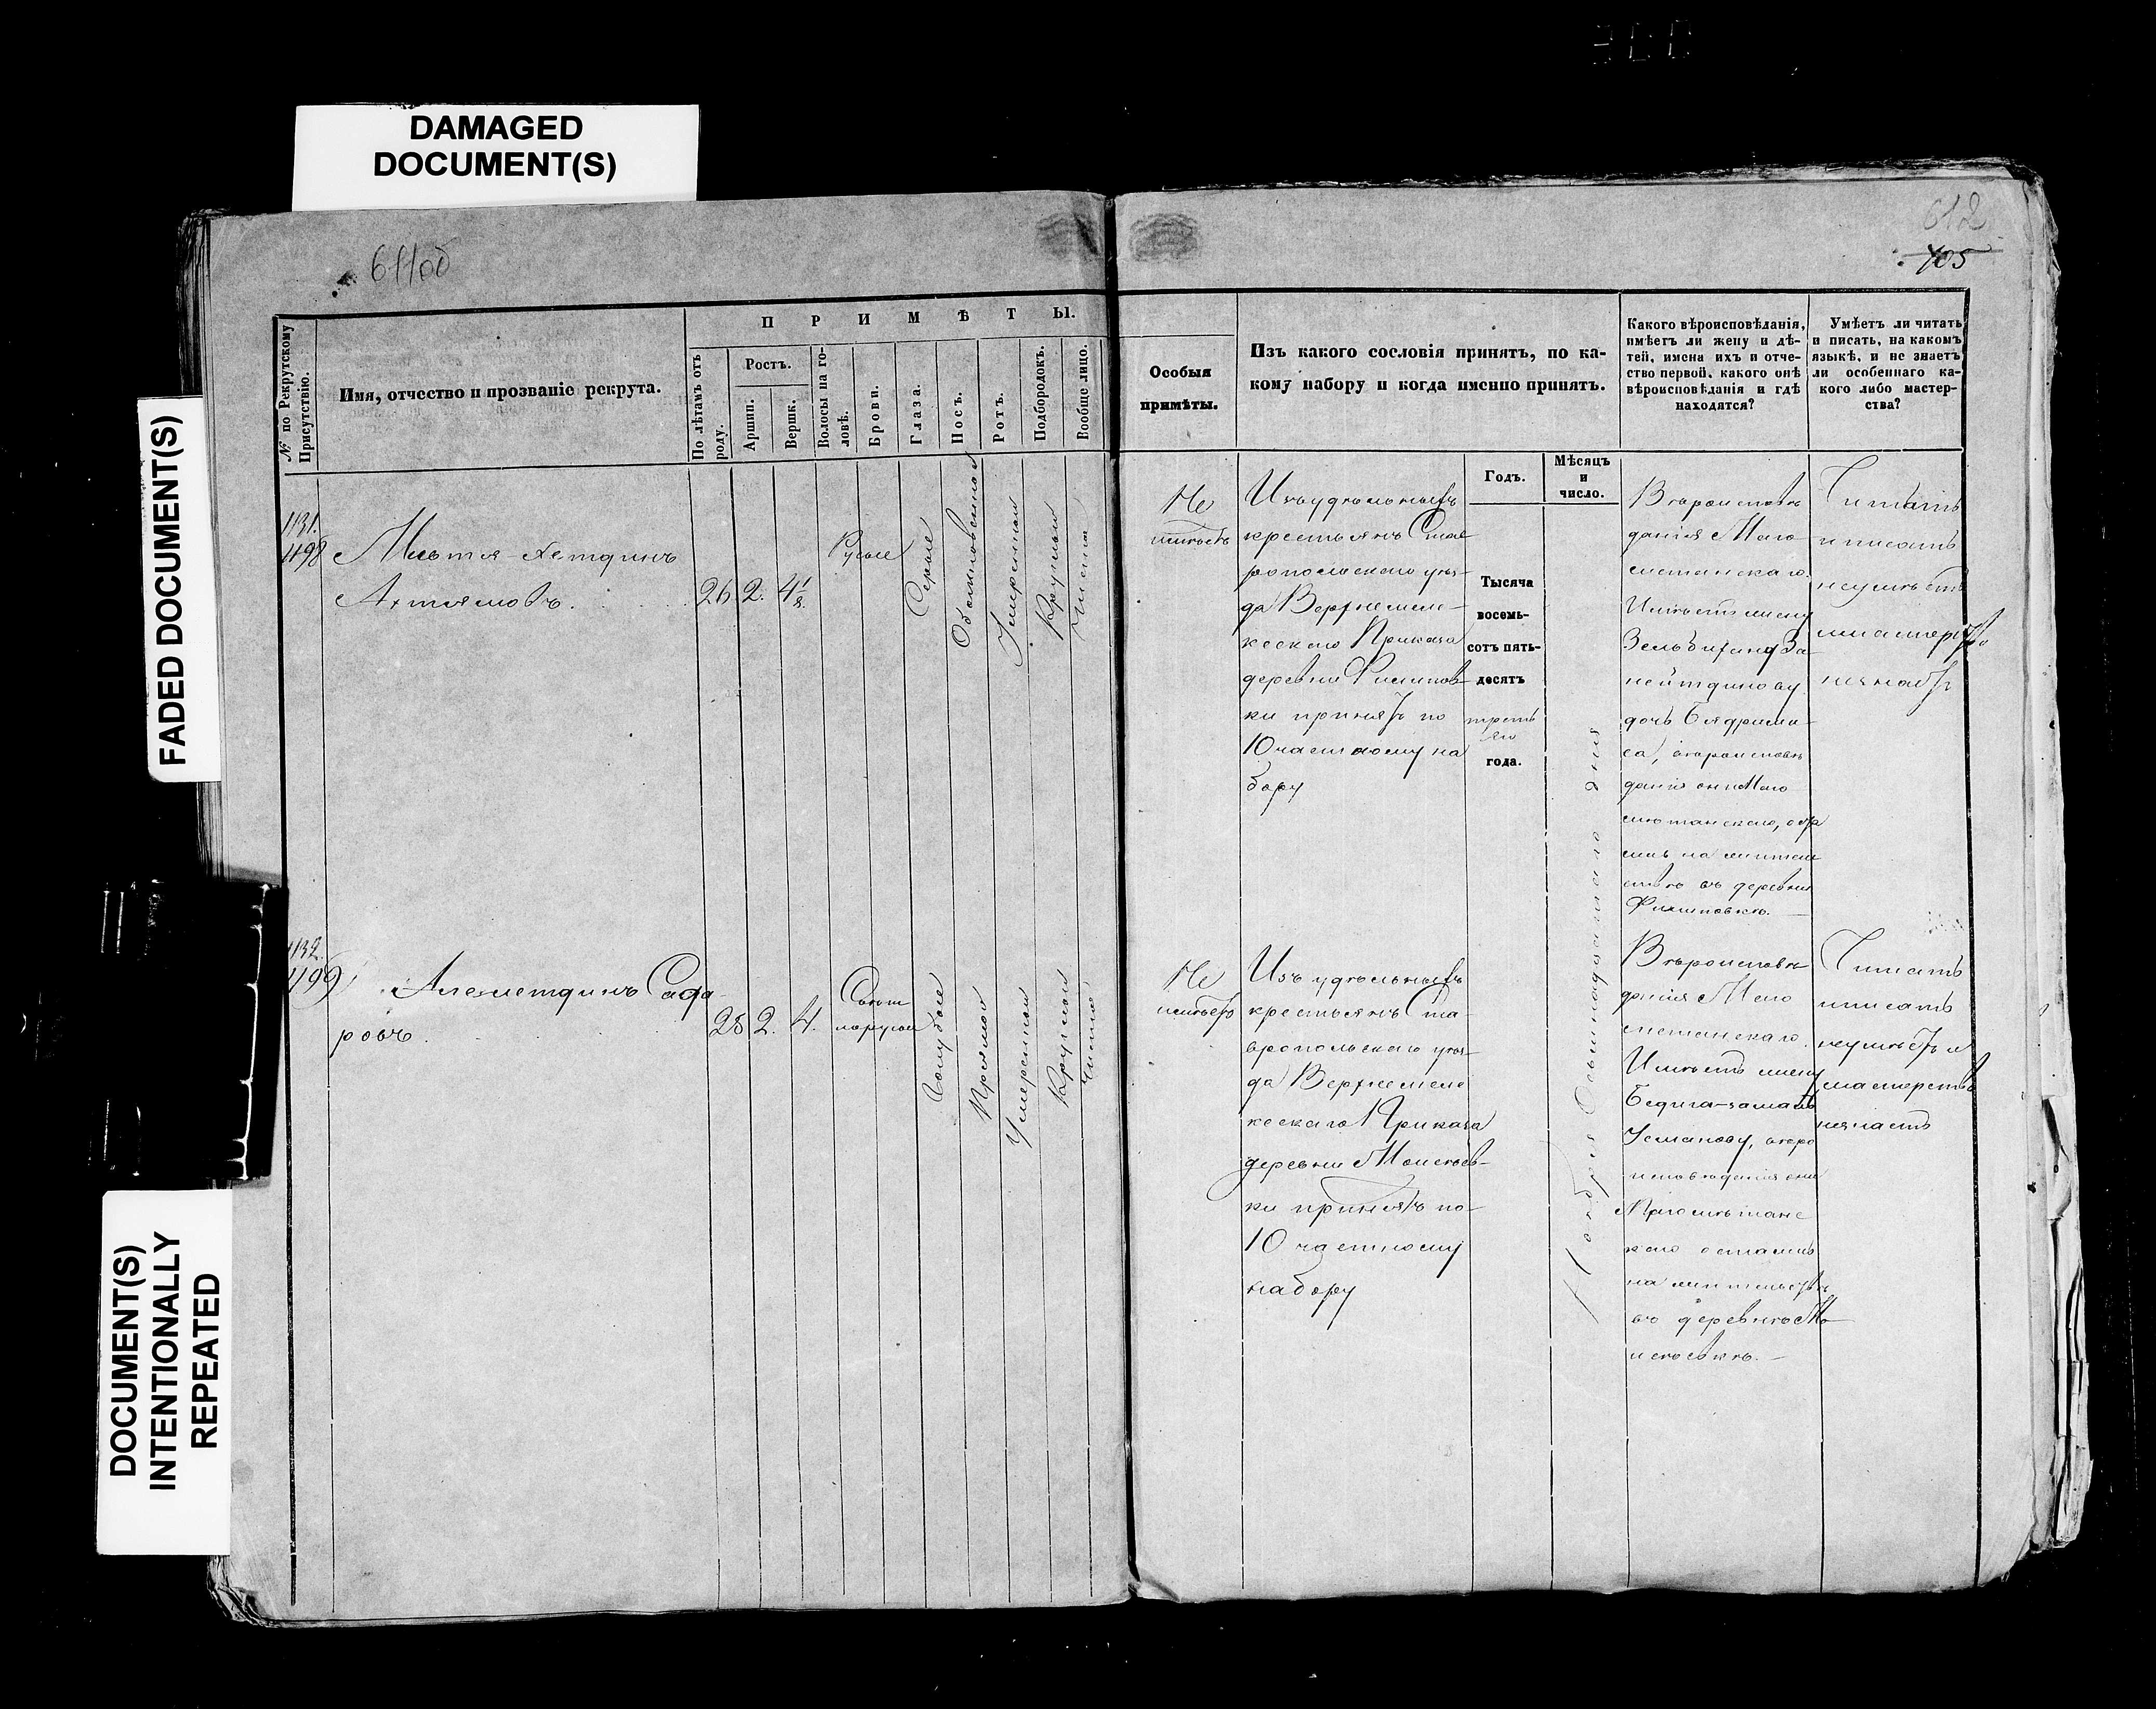 DAMAGED
DOCUMENT(S)
FADED DOCUMENT(S)
DOCUMENT(S)
INTENTIONALLY
REPEATED
611об
612
405
№ по Рекрутскому
Присутствію.
Имя, отчество и прозваніе рекрута.
ПРИМѢТЫ.
По лѣтамъ отъ
роду.
Ростъ.
Аршин.
Вершк.
Волосы на го-
ловѣ.
Брови.
Глаза.
Носъ.
Ротъ.
Подбородокъ.
Вообще лицо.
Особыя
примѣты.
Изъ какого сословія принятъ, по ка-
кому набору и когда именно принятъ.
Годъ.
Мѣсяцъ
и
число.
Какого вѣроисповѣданія,
имѣетъ ли жену и дѣ-
тей, имена ихъ и отче-
ство первой, какого онѣ
вѣроисповѣданія и гдѣ
находятся?
Умѣетъ ли читать
и писать, на какомъ
языкѣ, и не знаетъ
ли особеннаго ка-
кого либо мастер-
ства?
1131.
1198
Ахтямовъ.
26
2.
4 1/8
Русые
Серые
Обыкновенной
Умеренной
Круглой
Чисто
Не
имѣетъ
Изъ удѣльныхъ
крестьянъ Став
ропольскаго уѣз-
да Верхнемеле-
кескаго Приказа
деревни Филипов-
ки принятъ по
10 частному на
бору
Тысяча
восемь-
сотъ пять-
десятъ
третья
го
года.
Ноября Осьмнадцатаго дня
Вѣроисповѣ
данія Маго
метанскаго.
Имѣетъ жену
дочь
вѣроисповѣ
данія онѣ Маго
метанскаго, оста
лись на житель
ство въ деревни
Филиповкѣ.
Читать
и писать
неумѣетъ
мастерство
незнаетъ
1132.
1199
Алялетдинъ Сада
ровъ.
28
2.
4.
Светло
русые
Голубые
Прямой
Умеренной
Круглой
Чисто
Не
имѣетъ
Изъ удѣльныхъ
крестьянъ Ста-
вропольскаго уѣз-
да Верхнемеле
кескаго Приказа
деревни Моисѣев-
ки принятъ по
10 частному
набору
Вѣроисповѣ
данія Маго
метанскаго.
Имѣетъ жену
Усманову, вѣро
исповѣданія они
Магометанс
каго остались
на жительствѣ
въ деревнѣ Мо
исѣевкѣ.
Читать
писать
неумѣетъ и
мастерства
незнаетъ